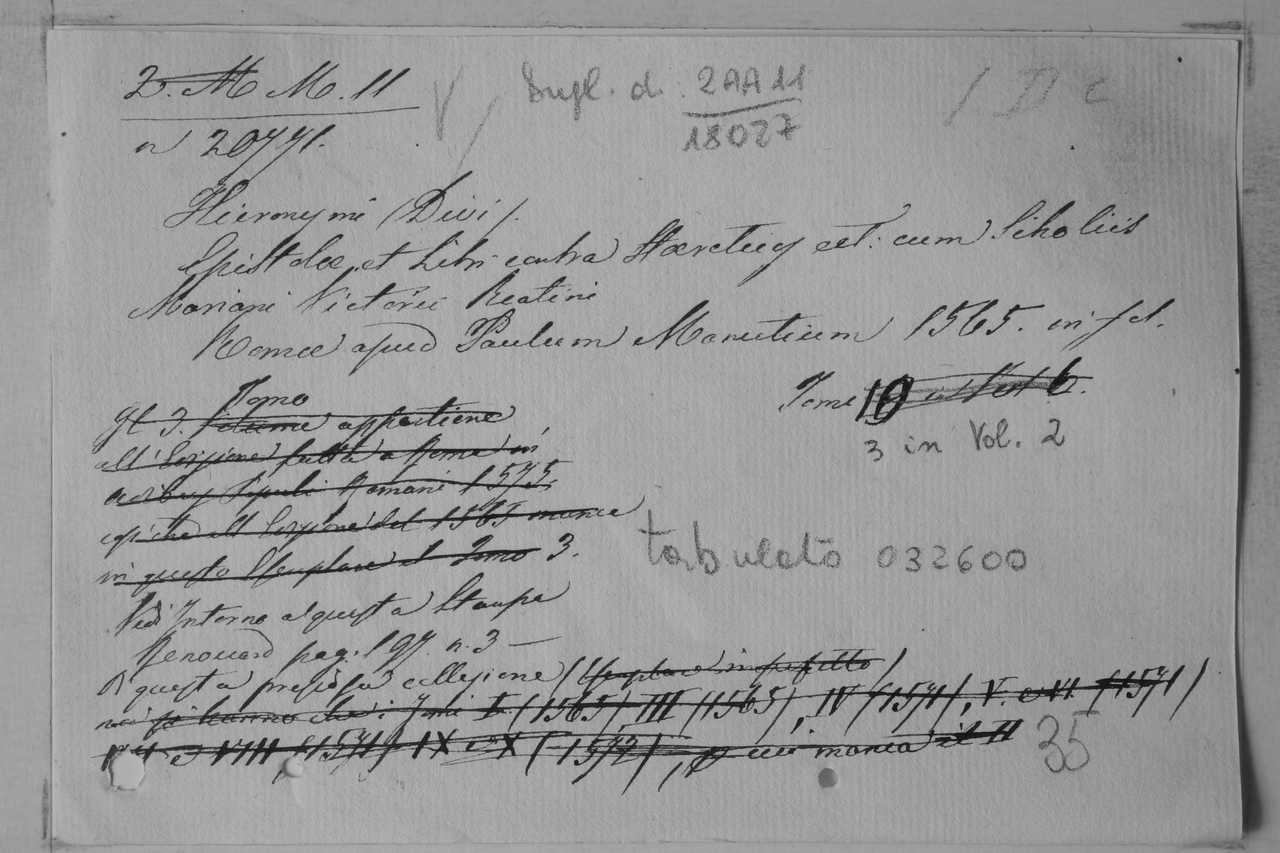 2. M M. 11
Dupl. d. 2AA11
18027
1 D c
n 20771.
Hieronymi (Divi).
Epistolae, et Libri contra Haereticos etc. cum Scholiis
Mariani Victorii Reatini
Romae apud Paulum Manutium 1565. in fol.
Tomi 10 in Vol. 6.
3 in Vol. 2
Il 3. Tomo appartiene
all'Edizione fatta a Roma in
aedibus Populi Romani 1575.
all'Edizione del 1565 manca
in questo Esemplare il Tomo 3.
Vedi Intorno a questa Stampa
Renouard pag. 197. n. 3 —
tabulato 032600
Di questa preziosa collezione (Esemplare imperfetto)
noi si hanno che i Tomi I (1565) III (1565), IV (1571), V. e VI. (1571)
VII e VIII (1571) IX e X (1572), e cui manca il II
35